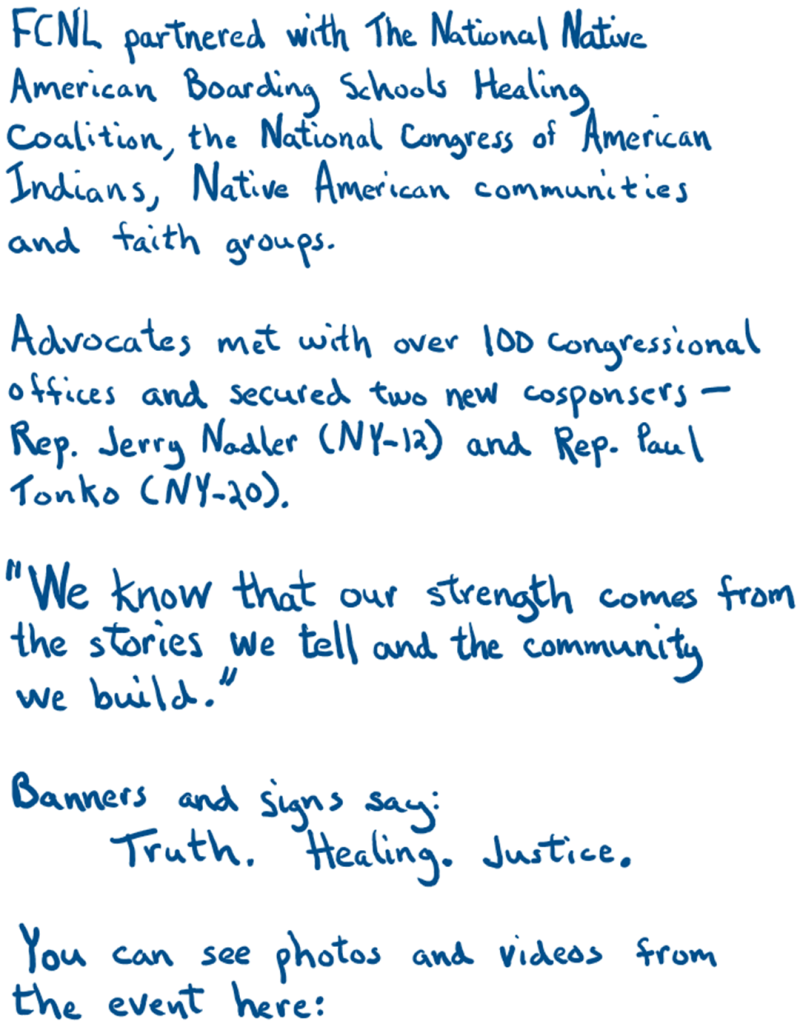 FCNL partnered with The National Native
American Boarding Schools Healing
Coalition, the National Congress of American
Indians, Native American communities
and faith groups.
Advocates met with over 100 congressional
offices and secured two new cosponsers —
Rep. Jerry Nadler (NY-12) and Rep. Paul
Tonko (NY-20).
"We know that our strength comes from
the stories we tell and the community
we build."
Banners and signs say:
Truth. Healing. Justice.
You can see photos and videos from
the event here: